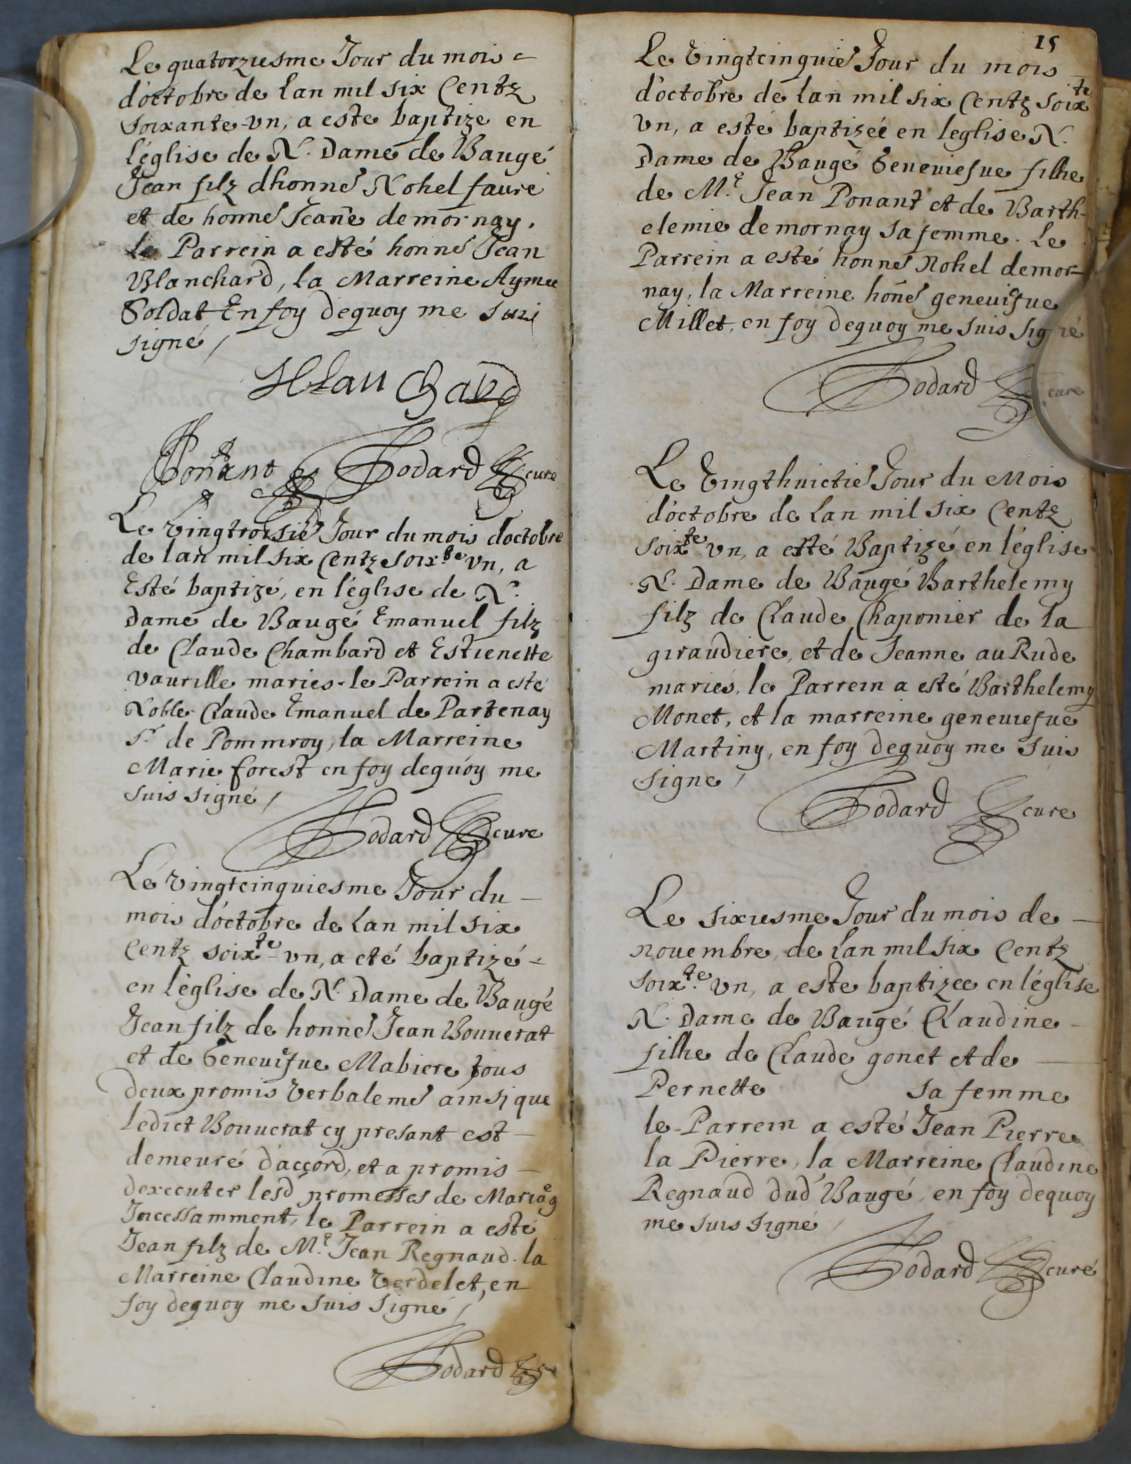 Le quatorziesme Jour du mois
d'octobre de lan mil six Centz
soixante vn, a este baptize en
l'église de N. Dame de Baugé
Jean filz dhonne Nohel faure
et de honne Jeañe demornay.
le Parrein a esté honne Jean
Blanchard, la Marreine Aymee
Soldat En foy dequoy me suis
signé /
Blanchard
Ponant Bodard cure
Le vingtroisie Jour du mois doctobre
de lan mil six Centz soixte vn, a
Esté baptizé, en l'église de N.
Dame de Baugé Emanuel filz
de Claude Chambard et Estienette
vaurille maries. le Parrein a esté
Noble Claude Emanuel de Partenay
Sr de Pommroy, la Marreine
Marie forest en foy dequoy me
suis signé /
Bodard cure
Le vingtcinquiesme Jour du
mois d'octobre de lan mil six
Centz soixte vn, a eté baptizé
en l'église de N. Dame de Baugé
Jean filz de honne Jean Bouuerat
et de Geneuifue Mabiere tous
deux promis verbaleme ainsi que
ledict Bouuerat cy presant est
demeuré d'accord, et a promis
dexecuter lesd promesses de Mariage
Incessamment, le Parrein a esté
Jean filz de Mre Jean Regnaud. la
Marreine Claudine Verdelet, en
foy dequoy me suis signé /
Bodard
15
Le vingtcinquie Jour du mois
d'octobre de lan mil six Centz soixte
vn, a esté baptizeé en l'eglise N.
Dame de Baugé Geneuiefue filhe
de Mre Jean Ponant et de Barth-
elemie demornay sa femme. Le
Parrein a esté honne Nohel demor-
nay, la Marreine hoñe geneuifue
Millet, en foy dequoy me suis signé
Bodard cure
Le vingthuictie Jour du Mois
d'octobre de lan mil six Centz
soixte vn, a esté Baptizé en l'église
N. Dame de Baugé Barthelemy
filz de Claude Chaponier de la
giraudiere, et de Jeanne au Rude
maries, le Parrein a esté Barthelemy
Monet, et la marreine geneuiefue
Martiny, en foy dequoy me suis
signé /
Bodard cure
Le sixiesme Jour du mois de
nouembre, de lan mil six Centz
soixte vn, a este baptizee en l'église
N. Dame de Baugé Claudine
filhe de Claude gonet et de
Pernette sa femme
le Parrein a esté Jean Pierre
la Pierre, la Marreine Claudine
Regnaud dud Baugé, en foy dequoy
me suis signé /
Bodard curé